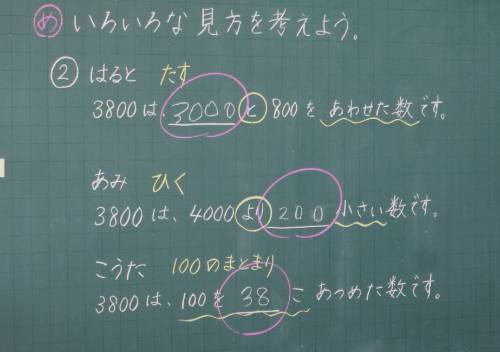 め いろいろな見方を考えよう。
② はると たす
3800は、3000と800をあわせた数です。
あみ ひく
3800は、4000より200小さい数です。
こうた 100のまとまり
3800は、100を38こあつめた数です。